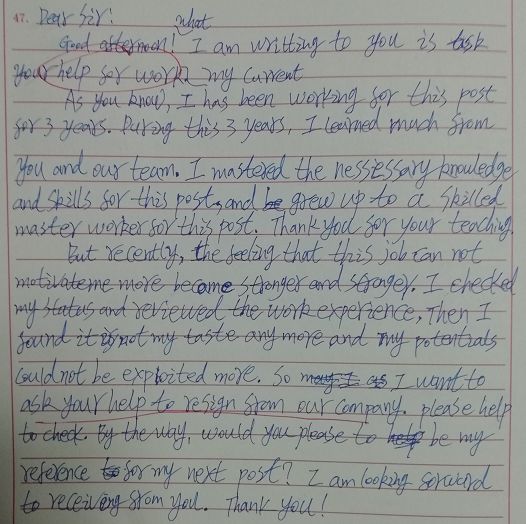 47. Dear Sir:
what
Good afternoon! I am writting to you is task
your help for work my current
As you know, I has been working for this post
for 3 years. During this 3 years, I learned much from
you and our team. I mastered the nessiessary knowledge
and skills for this post, and be grew up to a skilled
master worker for this post. Thank you for your teaching.
But recently, the feeling that this job can not
motivate me more became stronger and stronger. I checked
my status and reviewed the work experience, Then I
found it is not my taste any more and my potentials
could not be exploited more. So may I as I want to
ask your help to resign from our company. please help
to check. By the way, would you please to help be my
reference to for my next post? I am looking forward
to receiving from you. Thank you!